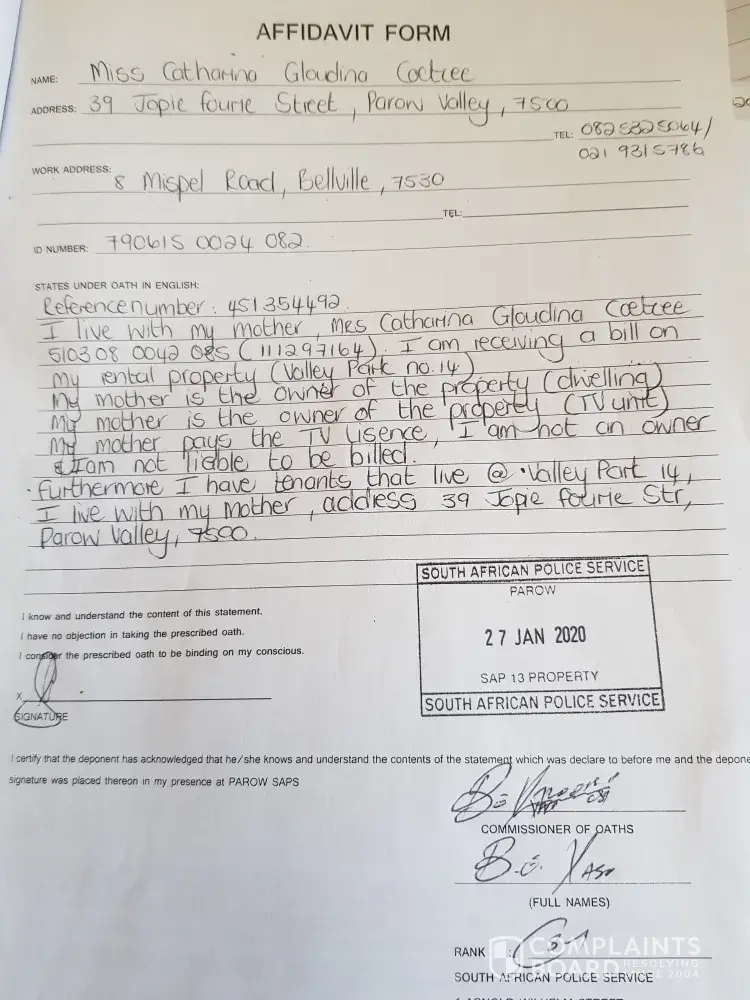 AFFIDAVIT FORM
NAME: Miss Catharina Gloudina Coetzee
ADDRESS: 39 Jopie Fourie Street, Parow Valley, 7500
TEL: 0825325064/
021 9315786
WORK ADDRESS: 8 Mispel Road, Bellville, 7530
TEL:
ID NUMBER: 790615 0024 082.
STATES UNDER OATH IN ENGLISH:
Reference number: 451354492.
I live with my mother, Mrs Catharina Gloudina Coetzee
510308 0042 085 (111297164). I am receiving a bill on
my rental property (Valley Park no. 14)
My mother is the owner of the property (dwelling)
My mother is the owner of the property (TV unit)
My mother pays the TV lisence, I am not an owner
& I am not liable to be billed.
· Furthermore I have tenants that live @ · Valley Park 14,
I live with my mother, address 39 Jopie Fourie Str,
Parow Valley, 7500.
I know and understand the content of this statement.
I have no objection in taking the prescribed oath.
I consider the prescribed oath to be binding on my conscious.
X
SIGNATURE
SOUTH AFRICAN POLICE SERVICE
PAROW
27 JAN 2020
SAP 13 PROPERTY
SOUTH AFRICAN POLICE SERVICE
I certify that the deponent has acknowledged that he/she knows and understand the contents of the statement which was declare to before me and the depone
signature was placed thereon in my presence at PAROW SAPS
COMMISSIONER OF OATHS
(FULL NAMES)
RANK
SOUTH AFRICAN POLICE SERVICE
COMPLAINTS
BOARD RESOLVING
SINCE 2004